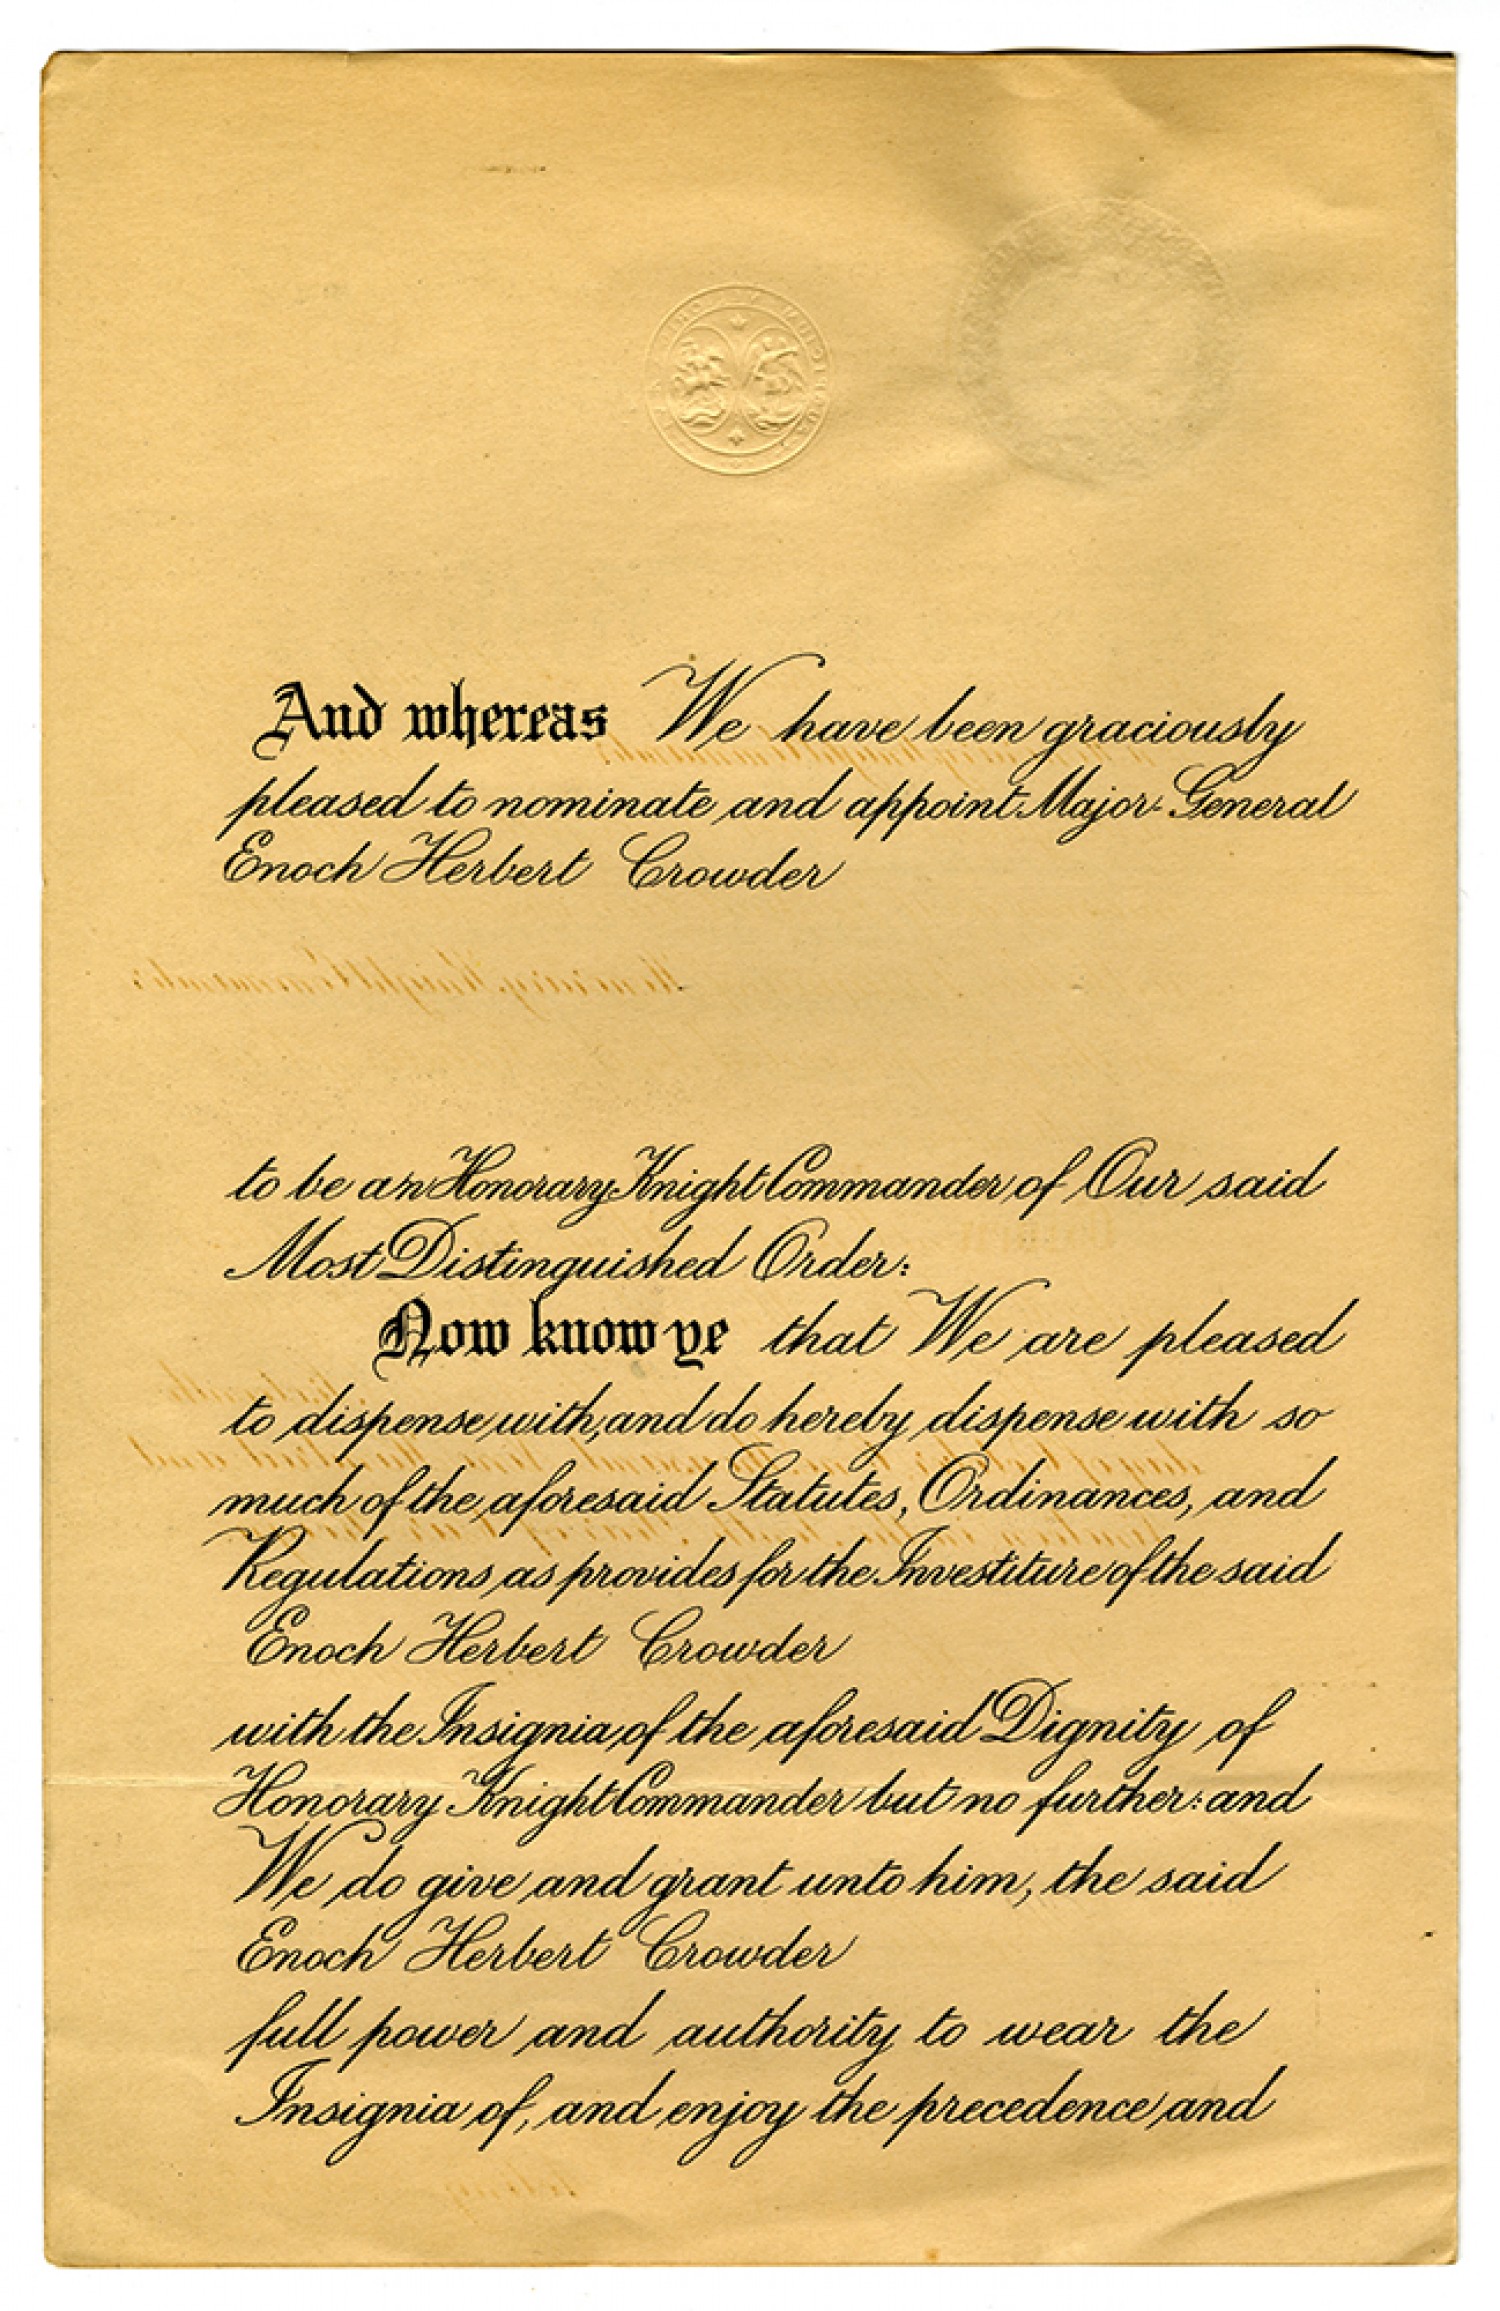 And whereas We have been graciously
pleased to nominate and appoint Major-General
Enoch Herbert Crowder
to be an Honorary Knight Commander of Our said
Most Distinguished Order:
Now know ye that We are pleased
to dispense with, and do hereby dispense with so
much of the aforesaid Statutes, Ordinances, and
Regulations, as provides for the Investiture of the said
Enoch Herbert Crowder
with the Insignia of the aforesaid Dignity of
Honorary Knight Commander but no further: and
We do give and grant unto him, the said
Enoch Herbert Crowder
full power and authority to wear the
Insignia of, and enjoy the precedence and